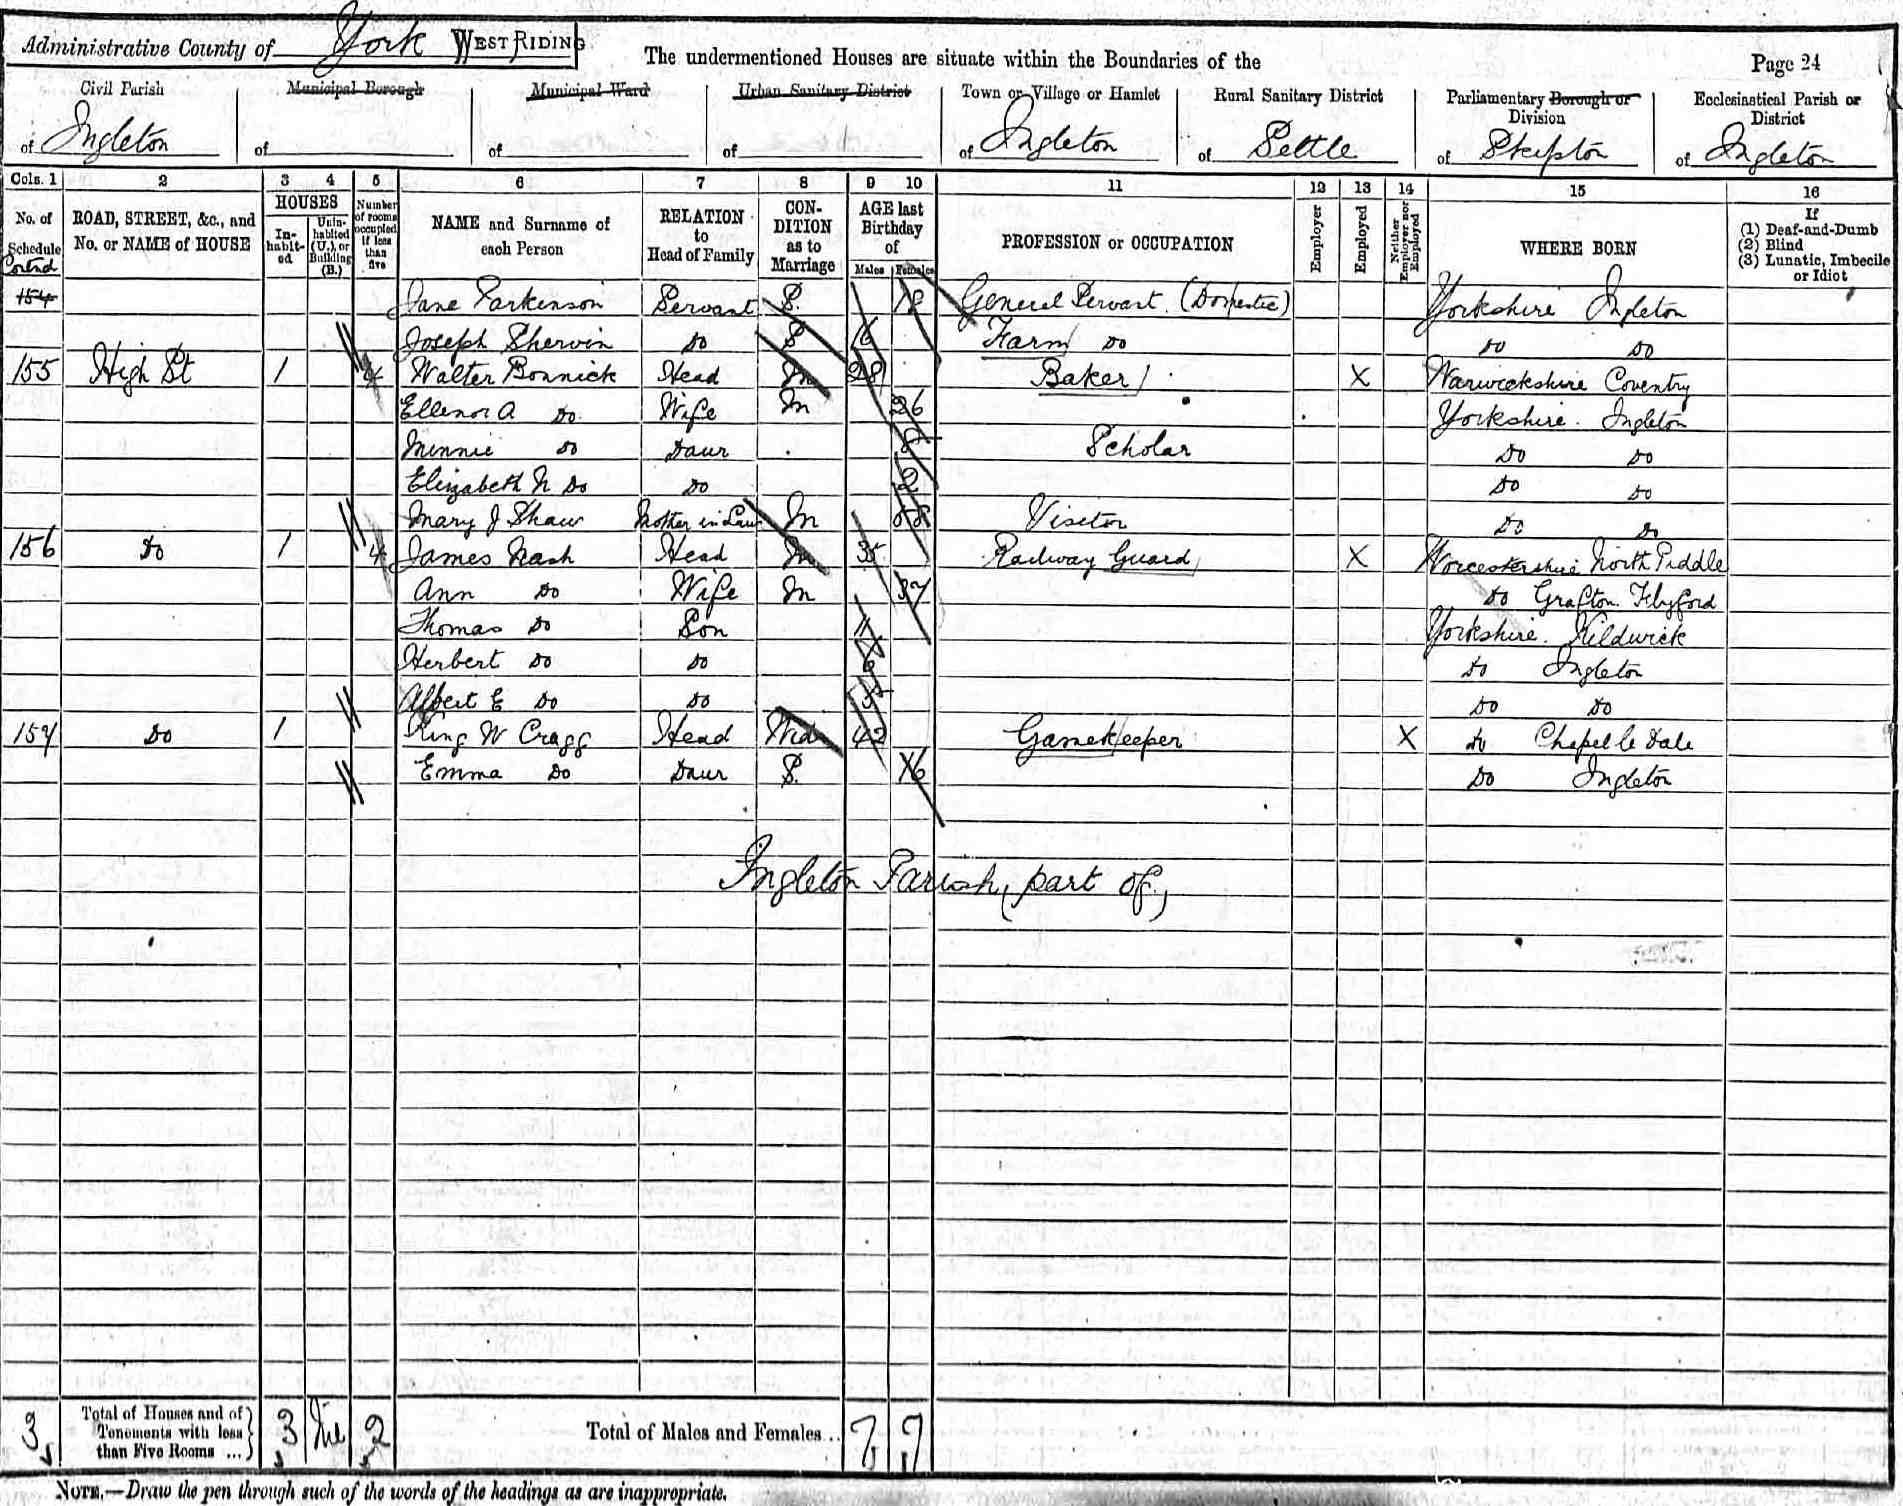 Administrative County of York WEST RIDING
The undermentioned Houses are situate within the Boundaries of the
Page 24
Civil Parish of Ingleton
Municipal Borough of
Municipal Ward of
Urban Sanitary District of
Town or Village or Hamlet of Ingleton
Rural Sanitary District of Settle
Parliamentary Borough or Division of Skipton
Ecclesiastical Parish or District of Ingleton
Cols. 1 2 3 4 5 6 7 8 9 10 11 12 13 14 15 16
No. of Schedule
ROAD, STREET, &c., and No. or NAME of HOUSE
HOUSES
In-habit-ed
Unin-habited (U.), or Building (B.)
Number of rooms occupied if less than five
NAME and Surname of each Person
RELATION to Head of Family
CON-DITION as to Marriage
AGE last Birthday of
Males Females
PROFESSION or OCCUPATION
Employer
Employed
Neither Employer nor Employed
WHERE BORN
If (1) Deaf-and-Dumb (2) Blind (3) Lunatic, Imbecile or Idiot
Contd
154 Jane Parkinson Servant S. 18 General Servant (Domestic) Yorkshire Ingleton
Joseph Sherwin Do S 16 Farm Do Do Do
155 High St 1 4 Walter Bonnick Head M 28 Baker X Warwickshire Coventry
Ellenor A Do Wife M 26 Yorkshire. Ingleton
Minnie Do Daur Scholar Do Do
Elizabeth N Do Do 2 Do Do
Mary J Shaw Mother in Law M Visitor Do Do
156 Do 1 4 James Nash Head M 35 Railway Guard X Worcestershire North Piddle
Ann Do Wife M 37 Do Grafton Flyford
Thomas Do Son 11 Yorkshire. Kildwick
Herbert Do Do Do Ingleton
Albert E Do Do Do Do
157 Do 1 King W Cragg Head Wid 42 Gamekeeper X Do Chapel le Dale
Emma Do Daur S. 16 Do Ingleton
Ingleton Parish, part of,
3 Total of Houses and of Tenements with less than Five Rooms ... 3 2 Total of Males and Females... 7 7
NOTE.—Draw the pen through such of the words of the headings as are inappropriate.